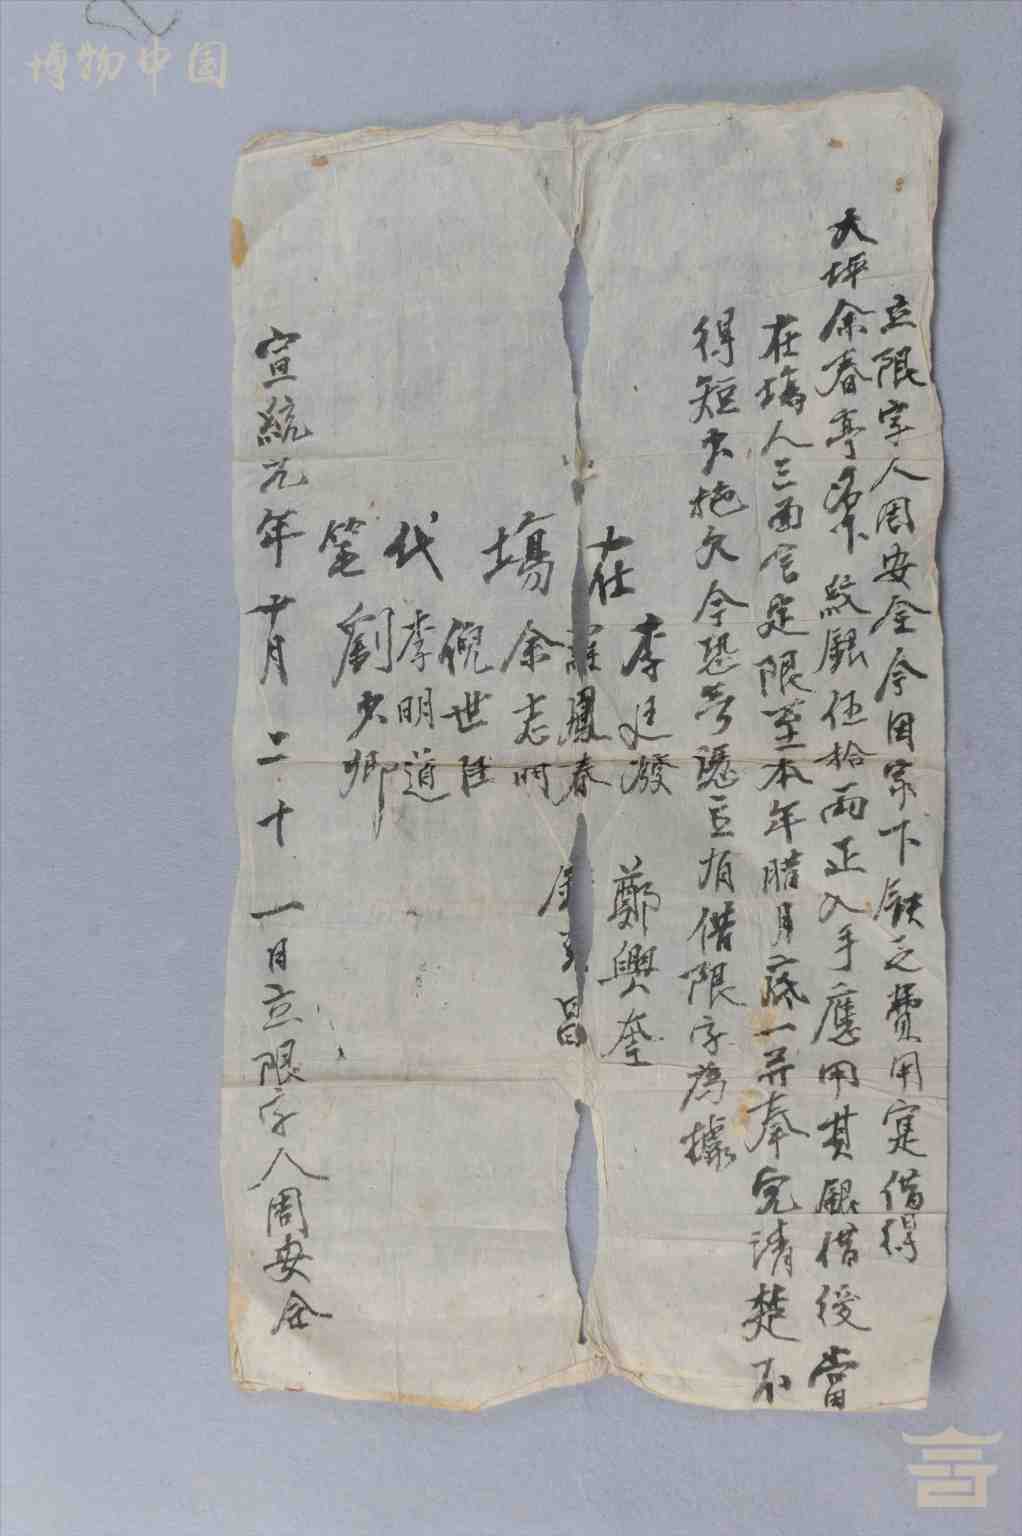 博物中国
立限字人周安全今因家下缺乏費用寔借得
大坪余春亭 名下紋銀伍拾兩正入手應用其銀借後當
在塲人三面言定限至本年腊月底一并奉完清楚不
得短少拖欠今恐無憑立有借限字為據
在塲
李廷發 鄭興奎
羅鳳春 余 昌
余志明
倪世
代筆
李明道
劉少卿
宣統元年十月二十一日立限字人周安全